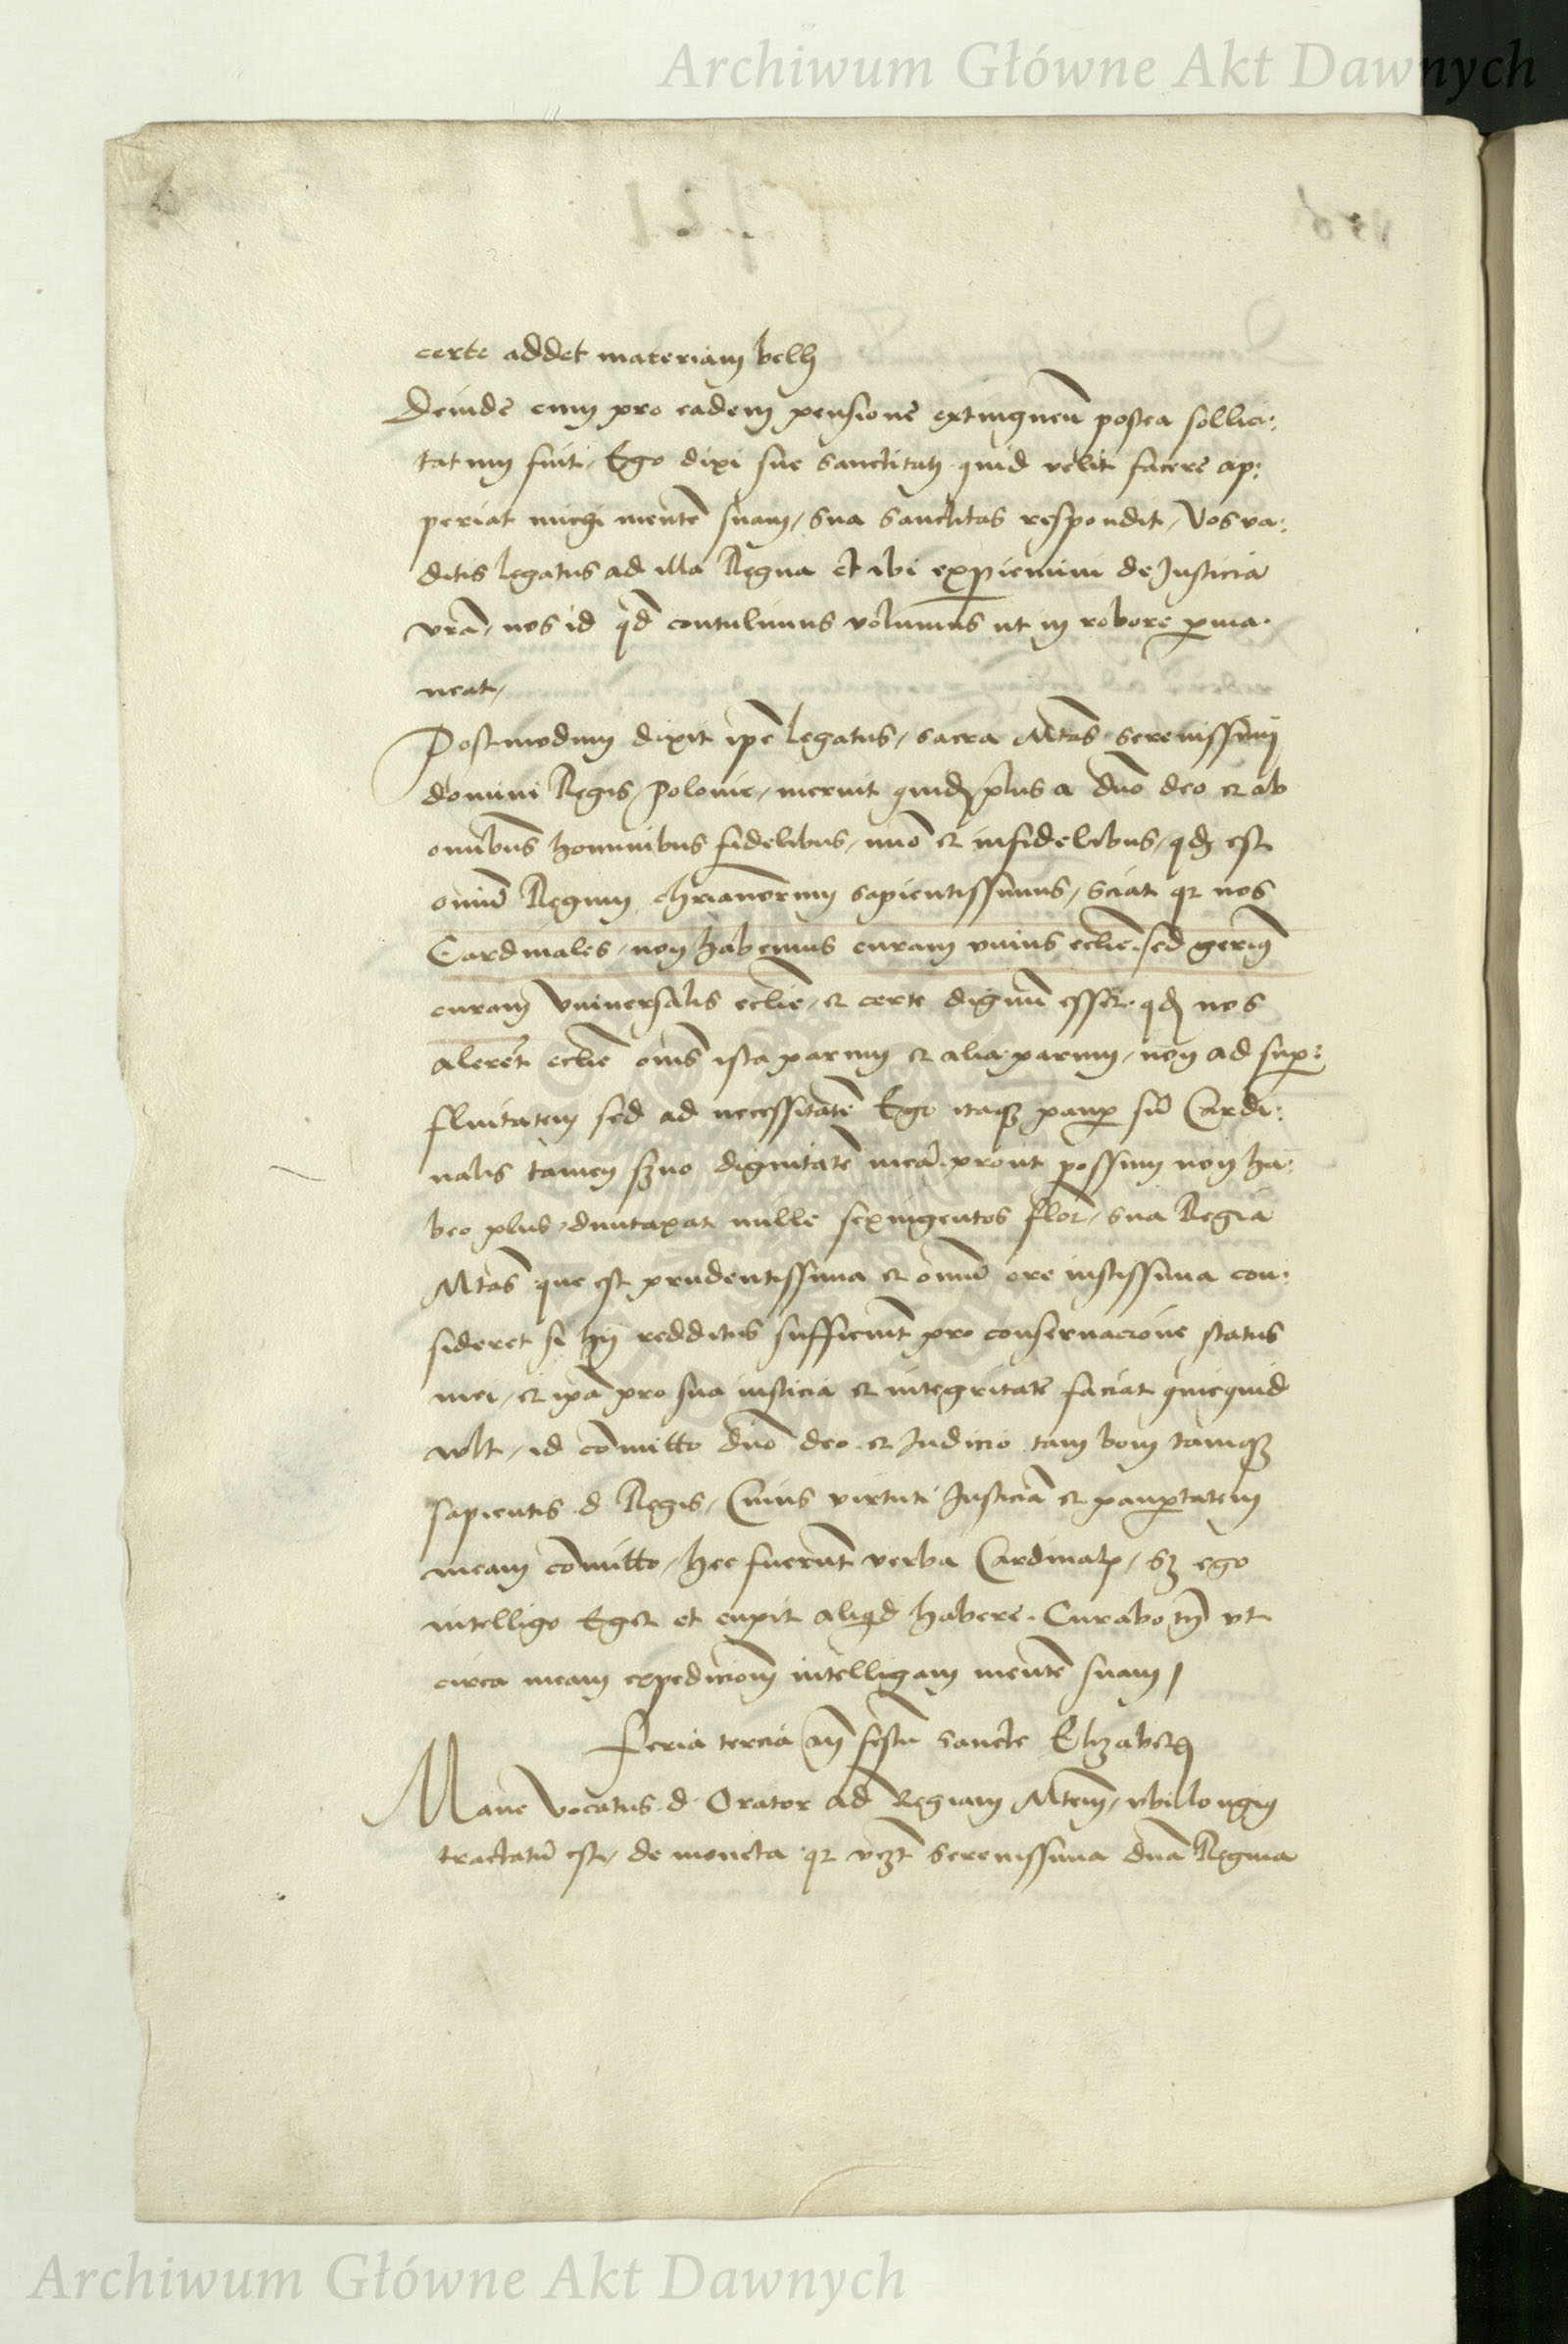 Archiwum Główne Akt Dawnych
certe addet materiam belli
Deinde cum pro eadem pensione extinguen̄ postea sollici:
tatum fuit, Ego dixi sue sanctitati quid velit facere ap:
periat michi mentē suam, Sua sanctitas respondit, Vos va:
ditis legatus ad illa Regna et ibi expiemini de Justicia
vrā, nos id qd contulimus volumus ut in robore perma:
neat,
Postmodum dixit ipē legatus, sacra Mtas serenissimi
domini Regis Polonie, meruit quidem plus a dno deo et ab
omībus hominibus fidelibus, imō et infidelibus, qd est
omniū Regum chrianorum sapientissimus, sciat qr nos
Cardinales, non habemus curam unius ecclie, sed gerim
curam Vniversalis ecclie, et certe dignū esset, qd nos
alerēt ecclie omēs ista parum et alia parum, non ad super:
fluitatem sed ad necessitatē Ego itaq pauper sū Cardi:
nalis tamen servo dignitatē meā, prout possum non ha:
beo plus, duntaxat mille sexingentos flor, sua Regia
Mtas que est prudentissima et omniū ore iustissima con:
sideret si hij redditus sufficiunt pro conseruacione status
mei, et ipā pro sua iusticia et integritatē faciat quicquid
vult, id cōmitto dno deo et Judicio tam boni tamq
sapientis d Regis, Cuius virtuti Justiciā et paupertatem
meam cōmitto, hec fuerunt verba Cardinalis, sz ego
intelligo Eget et cupit aliqd habere. Curabo tn vt
circa meam expedicionem intelligam mentē suam,
Feria tercia an festū sancte Elizabeth
Mane vocatus d Orator ad Regiam Mtem, vbi longum
tractatū est, de moneta qr vczt serenissima dna Regina
Archiwum Główne Akt Dawnych